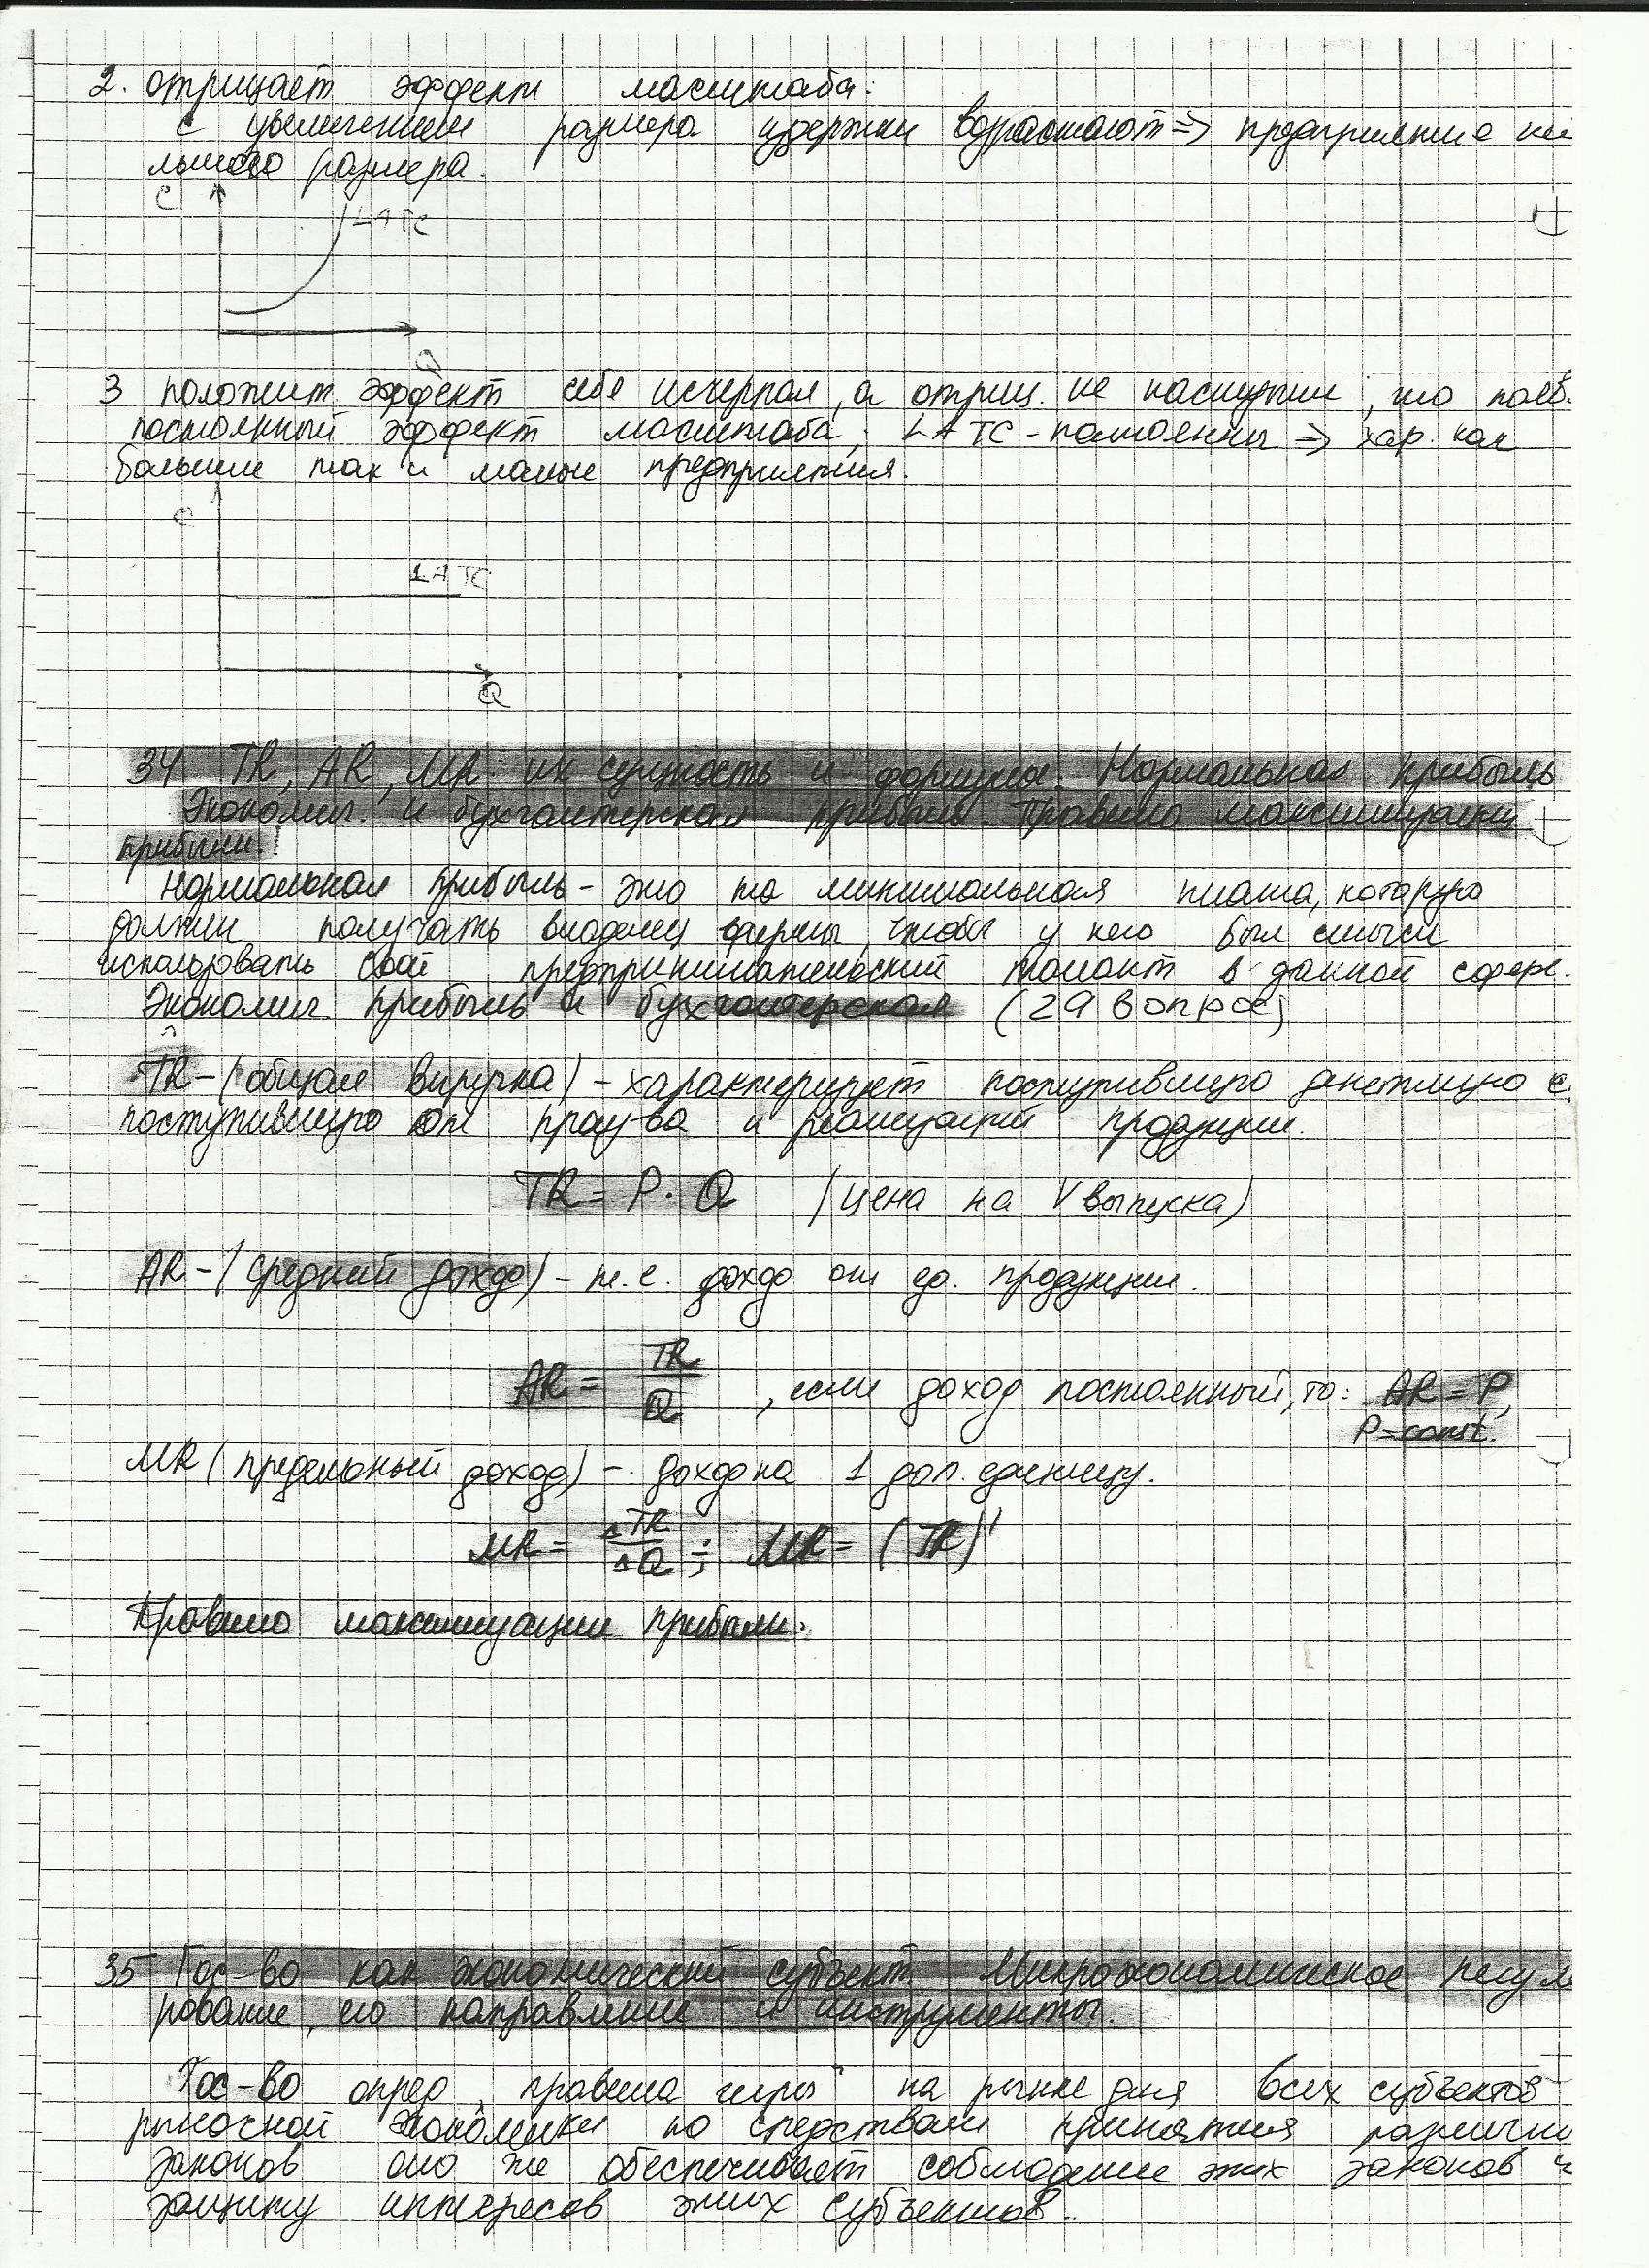 2. отрицает эффект масштаба:
с увеличением размера издержки возрастают => предприятие не
льшого размера.
C
LATC
Q
3 положит. эффект себя исчерпал, а отриц. не наступил, то набл.
постоянный эффект масштаба; LATC - постоянны => хар. как
большие так и малые предприятия.
C
LATC
Q
34 TR, AR, MR: их сущность и формулы. Нормальная прибыль
Экономич. и бухгалтерская прибыль. Правило максимизации
прибыли.
Нормальная прибыль - это та минимальная плата, которую
должен получать владелец фирмы, чтобы у него был смысл
использовать свой предпринимательский талант в данной сфере.
Экономич. прибыль и бухгалтерская (29 вопрос)
TR - (общая выручка) - характеризует поступившую денежную с.
поступившую от произ-ва и реализаций продукции.
TR = P · Q (цена на V выпуска)
AR - (средний доход) - т.е. доход от ед. продукции.
AR = TR / Q , если доход постоянный, то: AR = P,
P = const.
MR (предельный доход) - доход на 1 доп. единицу.
MR = ΔTR / ΔQ ; MR = (TR)'
Правило максимизации прибыли.
35 Гос-во как экономический субъект. Микроэкономическое регул
рование, его направление и инструменты.
Гос-во опред "правила игры" на рынке для всех субъектов
рыночной экономики по средствам принятия различн
законов оно же обеспечивает соблюдение этих законов и
защиту интересов этих субъектов.